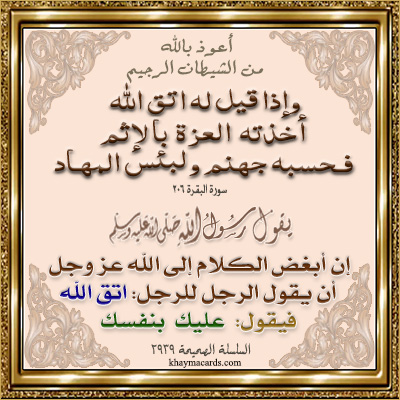 أعوذ بالله
من الشيطان الرجيم
وإذا قيل له اتق الله
أخذته العزة بالإثم
فحسبه جهنم ولبئس المهاد
سورة البقرة ٢٠٦
يقول رسول الله صلى الله عليه وسلم
إن أبغض الكلام إلى الله عز وجل
أن يقول الرجل للرجل: اتق الله
فيقول: عليك بنفسك
السلسلة الصحيحة ٢٩٣٩
khaymacards.com